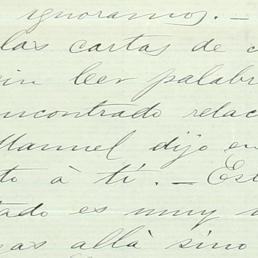 ignoramos. —
las cartas de
sin leer palabr
ncontrado relac
Manuel dijo en
to à tí. — Es
tado es muy
gas allà sino